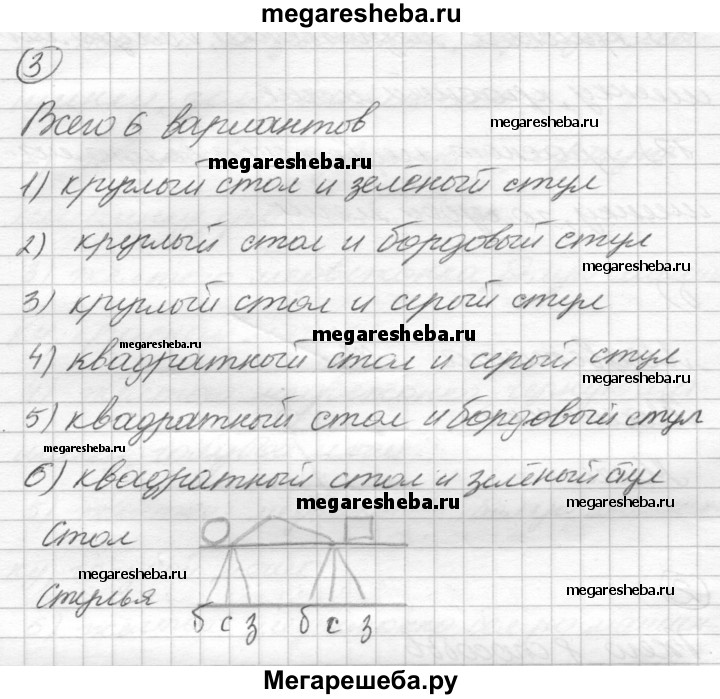 megaresheba.ru
3
Всего 6 вариантов
megaresheba.ru
megaresheba.ru
1) круглый стол и зелёный стул
2) круглый стол и бордовый стул
megaresheba.ru
3) круглый стол и серый стул
megaresheba.ru
4) квадратный стол и серый стул
megaresheba.ru
5) квадратный стол и бордовый стул
megaresheba.ru
6) квадратный стол и зелёный стул
megaresheba.ru
megaresheba.ru
Стол
megaresheba.ru
Стулья
megaresheba.ru
б с з б с з
Мегарешеба.ру